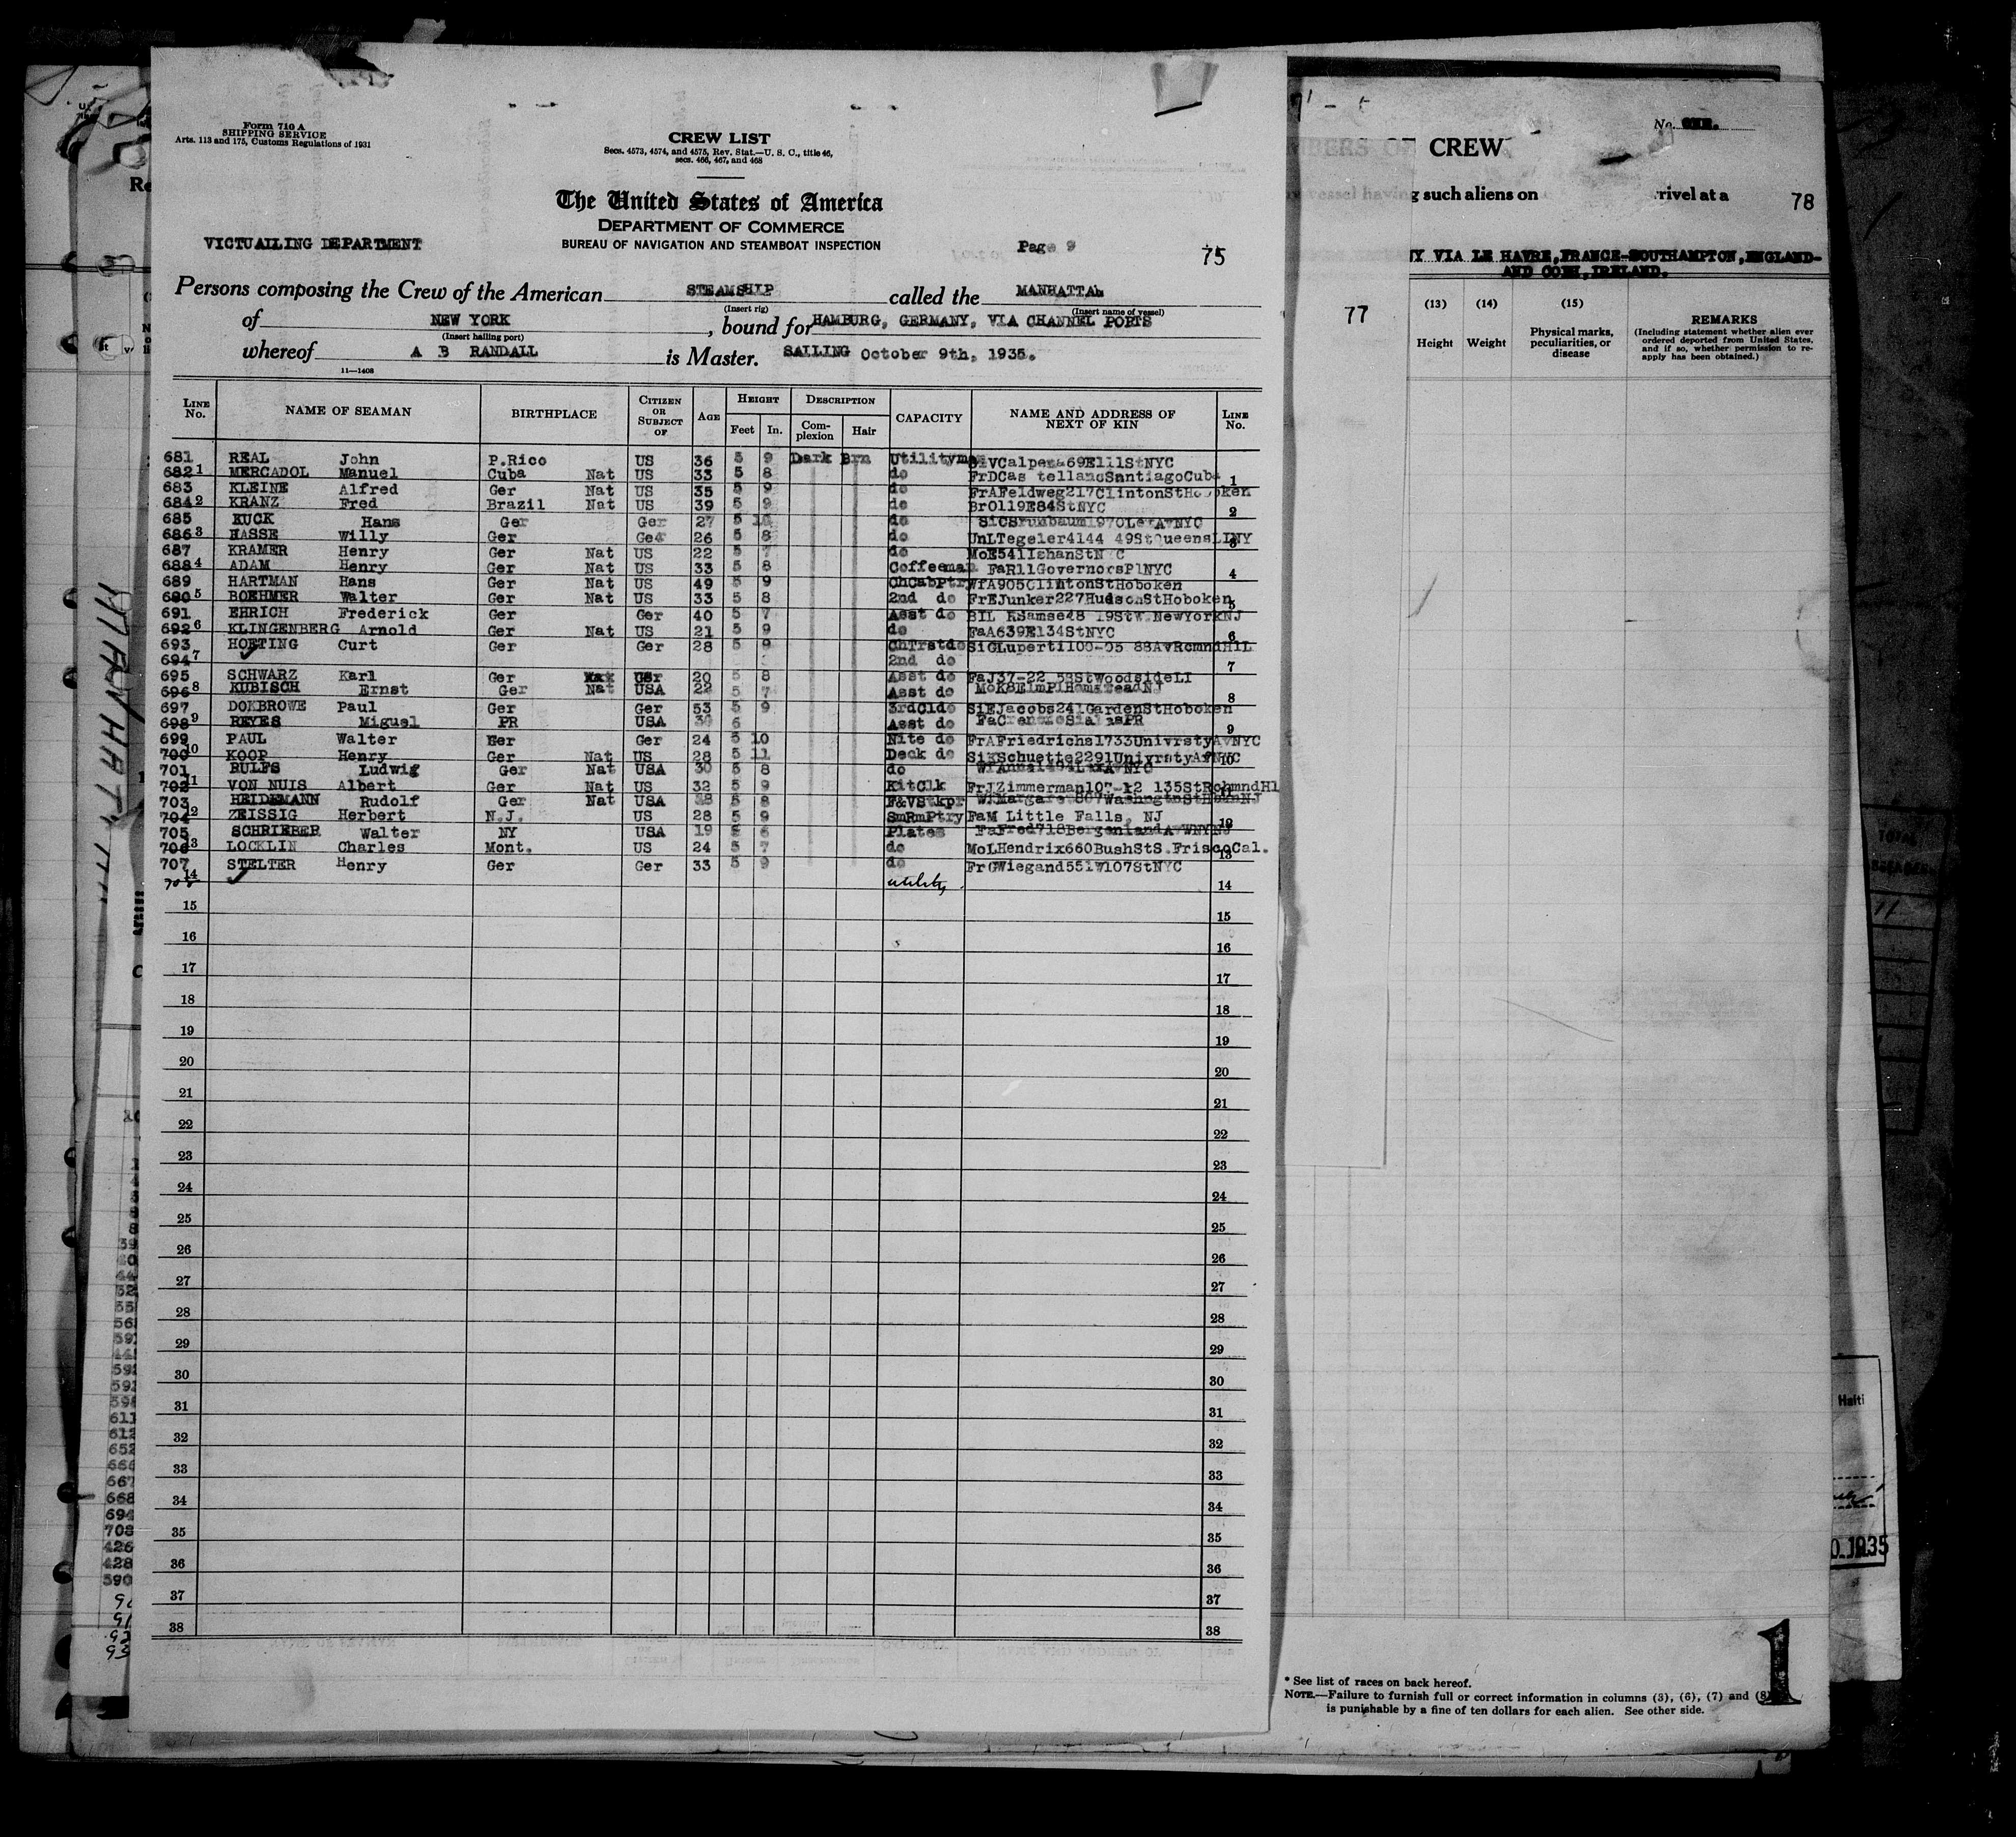 Form 710 A
SHIPPING SERVICE
Arts. 113 and 175, Customs Regulations of 1931
CREW LIST
Secs. 4573, 4574, and 4575, Rev. Stat.—U. S. C., title 46,
secs. 466, 467, and 468
The United States of America
DEPARTMENT OF COMMERCE
BUREAU OF NAVIGATION AND STEAMBOAT INSPECTION
VICTUAILING DEPARTMENT
Page 9
75
Persons composing the Crew of the American STEAMSHIP called the MANHATTAN
(Insert rig) (Insert name of vessel)
of NEW YORK, bound for HAMBURG, GERMANY, VIA CHANNEL PORTS
(Insert hailing port)
whereof A B RANDALL is Master. SAILING October 9th, 1935.
11—1408
LINE No. NAME OF SEAMAN BIRTHPLACE CITIZEN OR SUBJECT OF AGE HEIGHT Feet In. DESCRIPTION Complexion Hair CAPACITY NAME AND ADDRESS OF NEXT OF KIN LINE No.
681 REAL John P.Rico US 36 5 9 Dark Brn Utilityman
682 1 MERCADOL Manuel Cuba Nat US 33 5 8 do FrDCas tellanoSantiagoCuba 1
683 KLEINE Alfred Ger Nat US 35 5 9 do FrAFeldweg217ClintonStHoboken
684 2 KRANZ Fred Brazil Nat US 39 5 9 do BrO119E84StNYC 2
685 KUCK Hans Ger Ger 27 5 10 do
686 3 HASSE Willy Ger Ger 26 5 8 do UnLTegeler4144 49StQueensLINY 3
687 KRAMER Henry Ger Nat US 22 5 7 do
688 4 ADAM Henry Ger Nat US 33 5 8 Coffeeman FaR11GovernorsPlNYC 4
689 HARTMAN Hans Ger Nat US 49 5 9 ChCabPtry WfA905ClintonStHoboken
680 5 BOEHMER Walter Ger Nat US 33 5 8 2nd do FrEJunker227HudsonStHoboken 5
691 EHRICH Frederick Ger Ger 40 5 7 Asst do
692 6 KLINGENBERG Arnold Ger Nat US 21 5 9 do FaA639E134StNYC 6
693 HOETING Curt Ger Ger 28 5 9 ChTrstdo
694 7 2nd do 7
695 SCHWARZ Karl Ger 20 5 8 Asst do FaJ37-22 58StWoodsideLI
696 8 KUBISCH Ernst Ger Nat USA 22 5 7 Asst do 8
697 DOKBROWE Paul Ger Ger 53 5 9 3rdCldo SiEJacobs241GardenStHoboken
698 9 REYES Miguel PR USA 30 6 Asst do 9
699 PAUL Walter Ger Ger 24 5 10 Nite do FrAFriedrichs1733UnivrstyAvNYC
700 10 KOOP Henry Ger Nat US 28 5 11 Deck do SiESchuette2291UnivrstyAvNYC 10
701 RULFS Ludwig Ger Nat USA 30 5 8 do
702 11 VON NUIS Albert Ger Nat US 32 5 9 KitClk FrJZimmerman107-12 135StRchmndHl 11
703 HEIDEMANN Rudolf Ger Nat USA 38 5 8 F&VStkpr
704 12 ZEISSIG Herbert N.J. US 28 5 9 SmRmPtry FaM Little Falls, NJ 12
705 SCHRIEBER Walter NY USA 19 5 6 Plates FaFred718BergenlandAvWNYNJ
706 13 LOCKLIN Charles Mont. US 24 5 7 do MoLHendrix660BushStS.FriscoCal. 13
707 STELTER Henry Ger Ger 33 5 9 do FrGWiegand551W107StNYC
708 14 utility 14
15 15
16 16
17 17
18 18
19 19
20 20
21 21
22 22
23 23
24 24
25 25
26 26
27 27
28 28
29 29
30 30
31 31
32 32
33 33
34 34
35 35
36 36
37 37
38 38
CREW
No.
such aliens on
rival at a
78
VIA LE HAVRE,FRANCE-SOUTHAMPTON,ENGLAND-
AND COBH,IRELAND.
77
(13) Height
(14) Weight
(15) Physical marks, peculiarities, or disease
REMARKS
(Including statement whether alien ever
ordered deported from United States,
and if so, whether permission to re-
apply has been obtained.)
* See list of races on back hereof.
NOTE.—Failure to furnish full or correct information in columns (3), (6), (7) and (8)
is punishable by a fine of ten dollars for each alien. See other side.
1
Haiti
1935
TOTAL
MANHATTAN